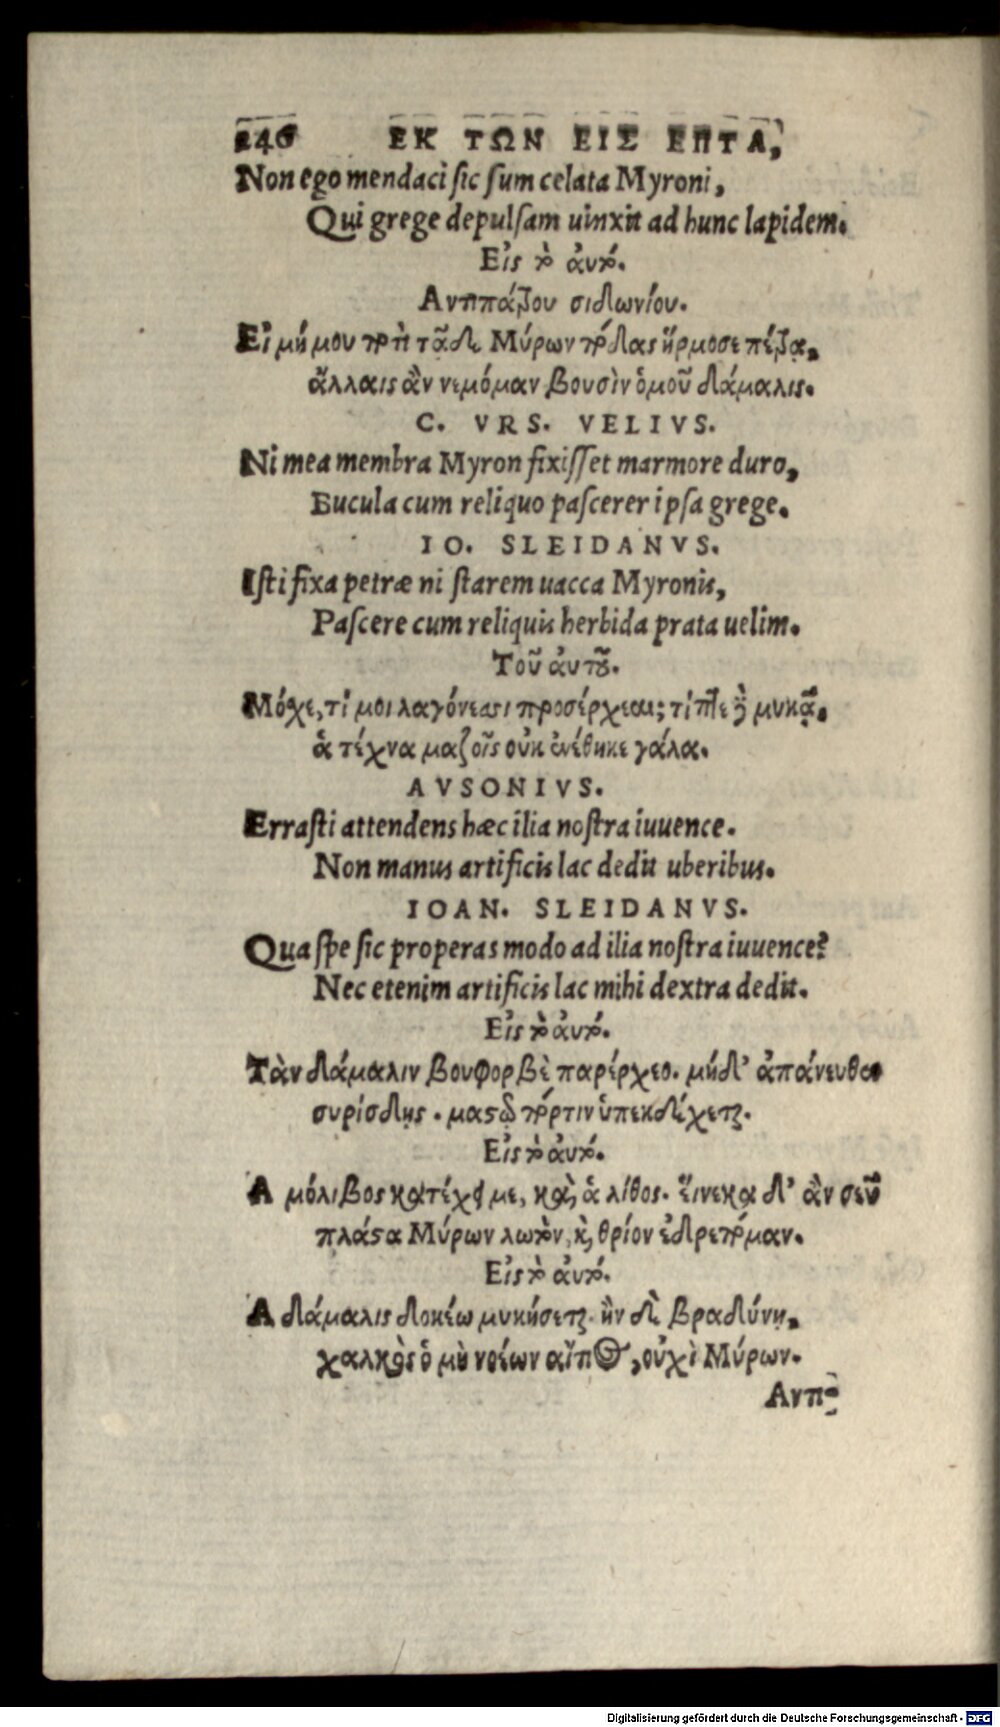 246 ΕΚ ΤΩΝ ΕΙΣ ΕΠΤΑ,
Non ego mendaci ſic ſum celata Myroni,
Qui grege depulſam uinxit ad hunc lapidem.
Εἰς τὸ ἀυτό.
Αντιπάτρου σιδωνίου.
Εἰ μή μου ποτὶ τᾷδε Μύρων πόδας ἥρμοσε πέτρᾳ,
ἄλλαις ἂν νεμόμαν βουσὶν ὁμοῦ δάμαλις.
C. VRS. VELIVS.
Ni mea membra Myron fixiſſet marmore duro,
Bucula cum reliquo paſcerer ipſa grege.
IO. SLEIDANVS.
Iſti fixa petræ ni ſtarem uacca Myronis,
Paſcere cum reliquis herbida prata uelim.
Τοῦ ἀυτοῦ.
Μόχε, τί μοι λαγόνεσσι προσέρχεαι; τίπτε δὲ μυκᾷ.
ἁ τέχνα μαζοῖς οὐκ ἐνέθηκε γάλα.
AVSONIVS.
Erraſti attendens hæc ilia noſtra iuuence.
Non manus artificis lac dedit uberibus.
IOAN. SLEIDANVS.
Qua ſpe ſic properas modo ad ilia noſtra iuuence?
Nec etenim artificis lac mihi dextra dedit.
Εἰς τὸ ἀυτό.
Τὰν δάμαλιν βουφορβὲ παρέρχεο. μήδ' ἀπάνευθε
συρίσδης. μαστῷ πόρτιν ὑπεκδέχεται.
Εἰς τὸ ἀυτό.
Α μόλιβος κατέχει με, καὶ ἁ λίθος. εἵνεκα δ' ἂν σεῦ
πλάστα Μύρων λωτὸν, καὶ θρίον ἐδρεπόμαν.
Εἰς τὸ ἀυτό.
Α δάμαλις δοκέω μυκήσεται. ἢν δὲ βραδύνῃ,
χαλκὸς ὁ μὴ νοέων αἴτιος, οὐχὶ Μύρων.
Αντι-
Digitalisierung gefördert durch die Deutsche Forschungsgemeinschaft - DFG